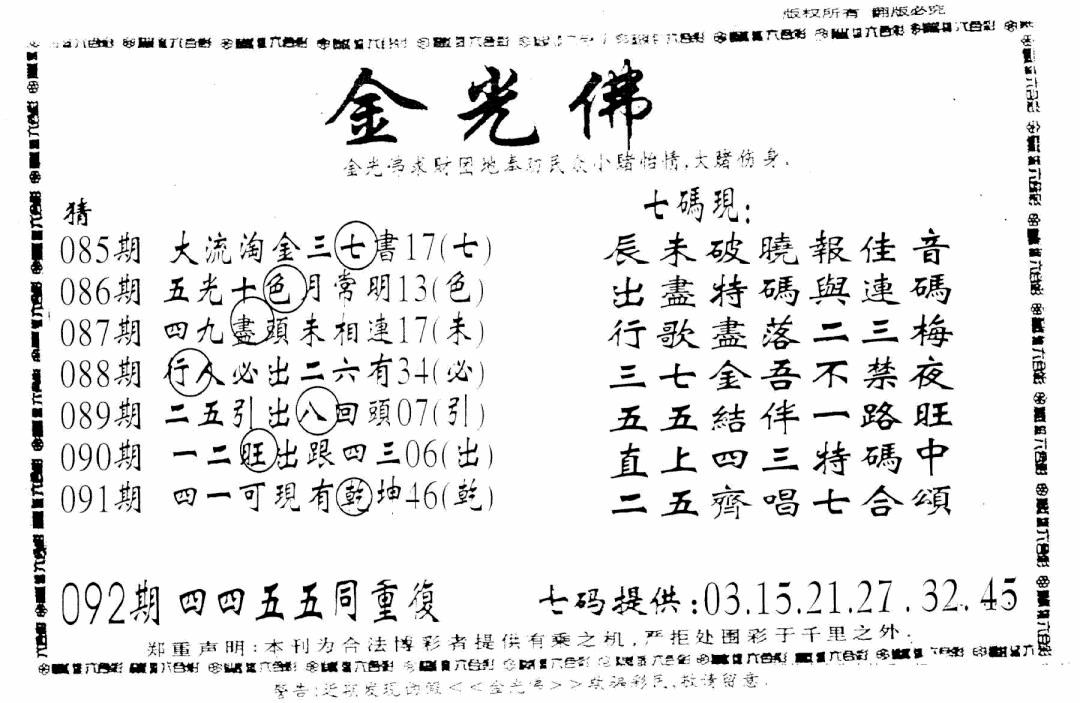 版权所有 翻版必究
金光佛
金光佛求财因地奉劝民众小赌怡情,大赌伤身.
猜
085期 大流淘金三七書17(七)
086期 五光十色月常明13(色)
087期 四九盡頭未相連17(未)
088期 行人必出二六有34(必)
089期 二五引出八回頭07(引)
090期 一二旺出跟四三06(出)
091期 四一可現有乾坤46(乾)
七碼現:
辰未破曉報佳音
出盡特碼與連碼
行歌盡落二三梅
三七金吾不禁夜
五五結伴一路旺
直上四三特碼中
二五齊唱七合頌
092期 四四五五同重復
七码提供:03.15.21.27.32.45
郑重声明:本刊为合法博彩者提供有乘之机,严拒处围彩于千里之外.
警告:近期发现的假<<金光佛>>欺骗彩民,敬请留意.